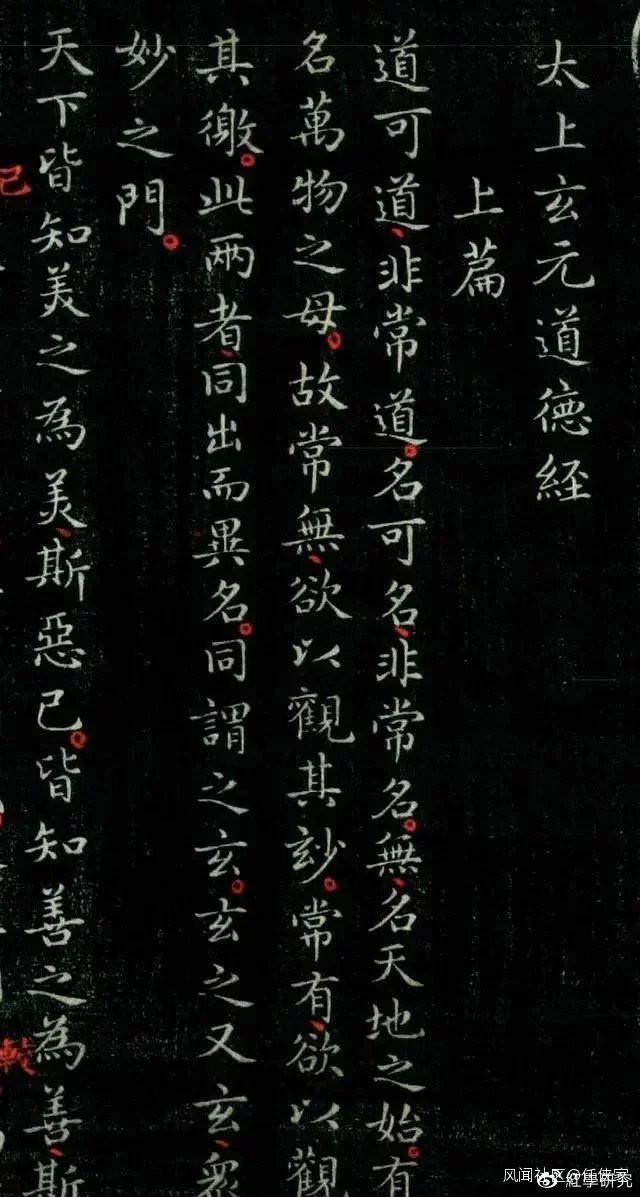 太上玄元道德經
上篇
道可道、非常道。名可名、非常名。無、名天地之始。有
名萬物之母。故常無、欲以觀其玅。常有、欲以觀
其徼。此兩者、同出而異名。同謂之玄。玄之又玄、衆
妙之門。
天下皆知美之為美、斯惡已。皆知善之為善、斯
风闻社区